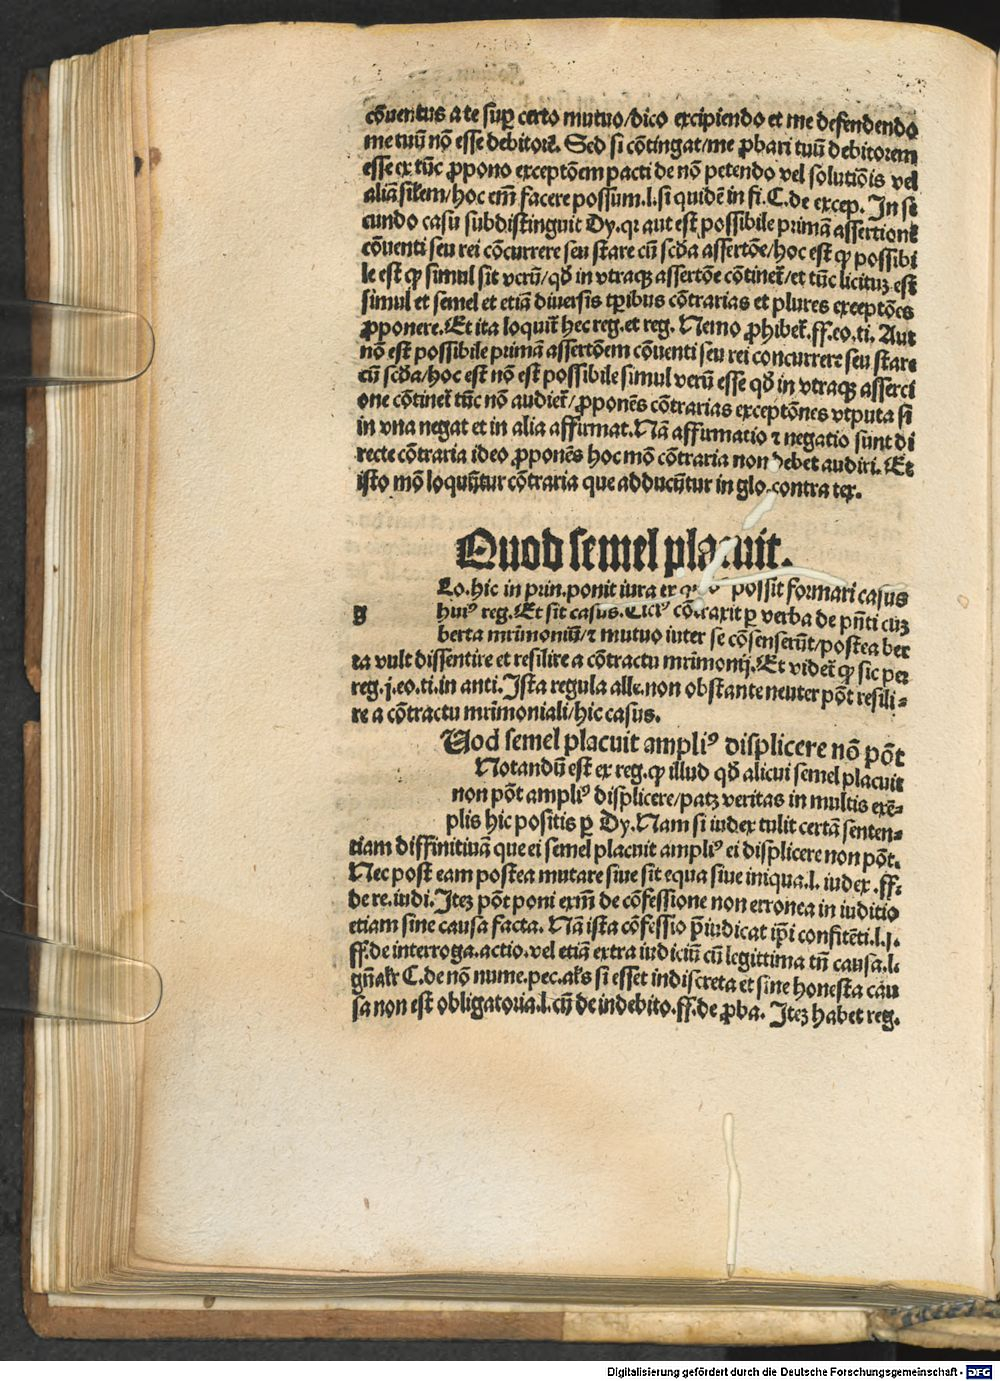 cōuentus a te suꝑ certo mutuo/dico excipiendo et me defendendo
me tuū nō esse debitorē. Sed si cōtingat/me ꝓbari tuū debitorem
esse ex tūc ꝓpono exceptōem pacti de nō petendo vel solutiōis vel
aliā silem/hoc em̄ facere possum.l.si quidē in fi.C.de excep. In se
cundo casu subdistinguit Dy.qꝛ aut est possibile primā assertionē
cōuenti seu rei cōcurrere seu stare cū scđa assertōe/hoc est ꝙ possibi
le est ꝙ simul sit verū/qđ in vtraqꝫ assertōe cōtinet̄/et tūc licituꝫ est
simul et semel et etiā diuersis tꝑibus cōtrarias et plures exceptōes
ꝓponere.Et ita loquit̄ hec reg.et reg. Nemo ꝓhibet̄.ff.eo.ti. Aut
nō est possibile primā assertōem cōuenti seu rei concurrere seu stare
cū scđa/hoc est nō est possibile simul verū esse qđ in vtraqꝫ asserci
one cōtinet̄ tūc nō audiet̄/ꝓponēs cōtrarias exceptōnes vtputa si
in vna negat et in alia affirmat.Nā affirmatio ⁊ negatio sunt di
recte cōtraria ideo ꝓponēs hoc mō cōtraria non debet audiri. Et
isto mō loquūtur cōtraria que adducūtur in glo.contra tex.
Quod semel placuit.
Lo.hic in prin.ponit iura ex possit formari casus
g huiꝰ reg.Et sit casus. cōtraxit ꝑ verba de pn̄ti cūꝫ
berta mr̄imoniū/⁊ mutuo inter se cōsenserūt/postea ber
ta vult dissentire et resilire a cōtractu mr̄imonij.Et videt̄ ꝙ sic per
reg.j.eo.ti.in anti.Ista regula alle.non obstante neuter pōt resili⸗
re a cōtractu mr̄imoniali/hic casus.
Uod semel placuit ampliꝰ displicere nō pōt
Notandū est ex reg.ꝙ illud qđ alicui semel placuit
non pōt ampliꝰ displicere/patꝫ veritas in multis exē⸗
plis hic positis ꝑ Dy.Nam si iudex tulit certā senten⸗
tiam diffinitiuā que ei semel placuit ampliꝰ ei displicere non pōt.
Nec post eam postea mutare siue sit equa siue iniqua.l. iudex.ff.
de re.iudi.Iteꝫ pōt poni exm̄ de cōfessione non erronea in iuditio
etiam sine causa facta. Nā ista cōfessio p̄iudicat ip̄i confitēti.l.j.
ff.de interroga.actio.vel etiā extra iudiciū cū legittima tn̄ causa.l.
gn̄alr̄ C.de nō nume.pec.al̄s si esset indiscreta et sine honesta cau
sa non est obligatoria.l.cū de indebito.ff.de ꝓba. Iteꝫ habet reg.
Digitalisierung gefördert durch die Deutsche Forschungsgemeinschaft - DFG